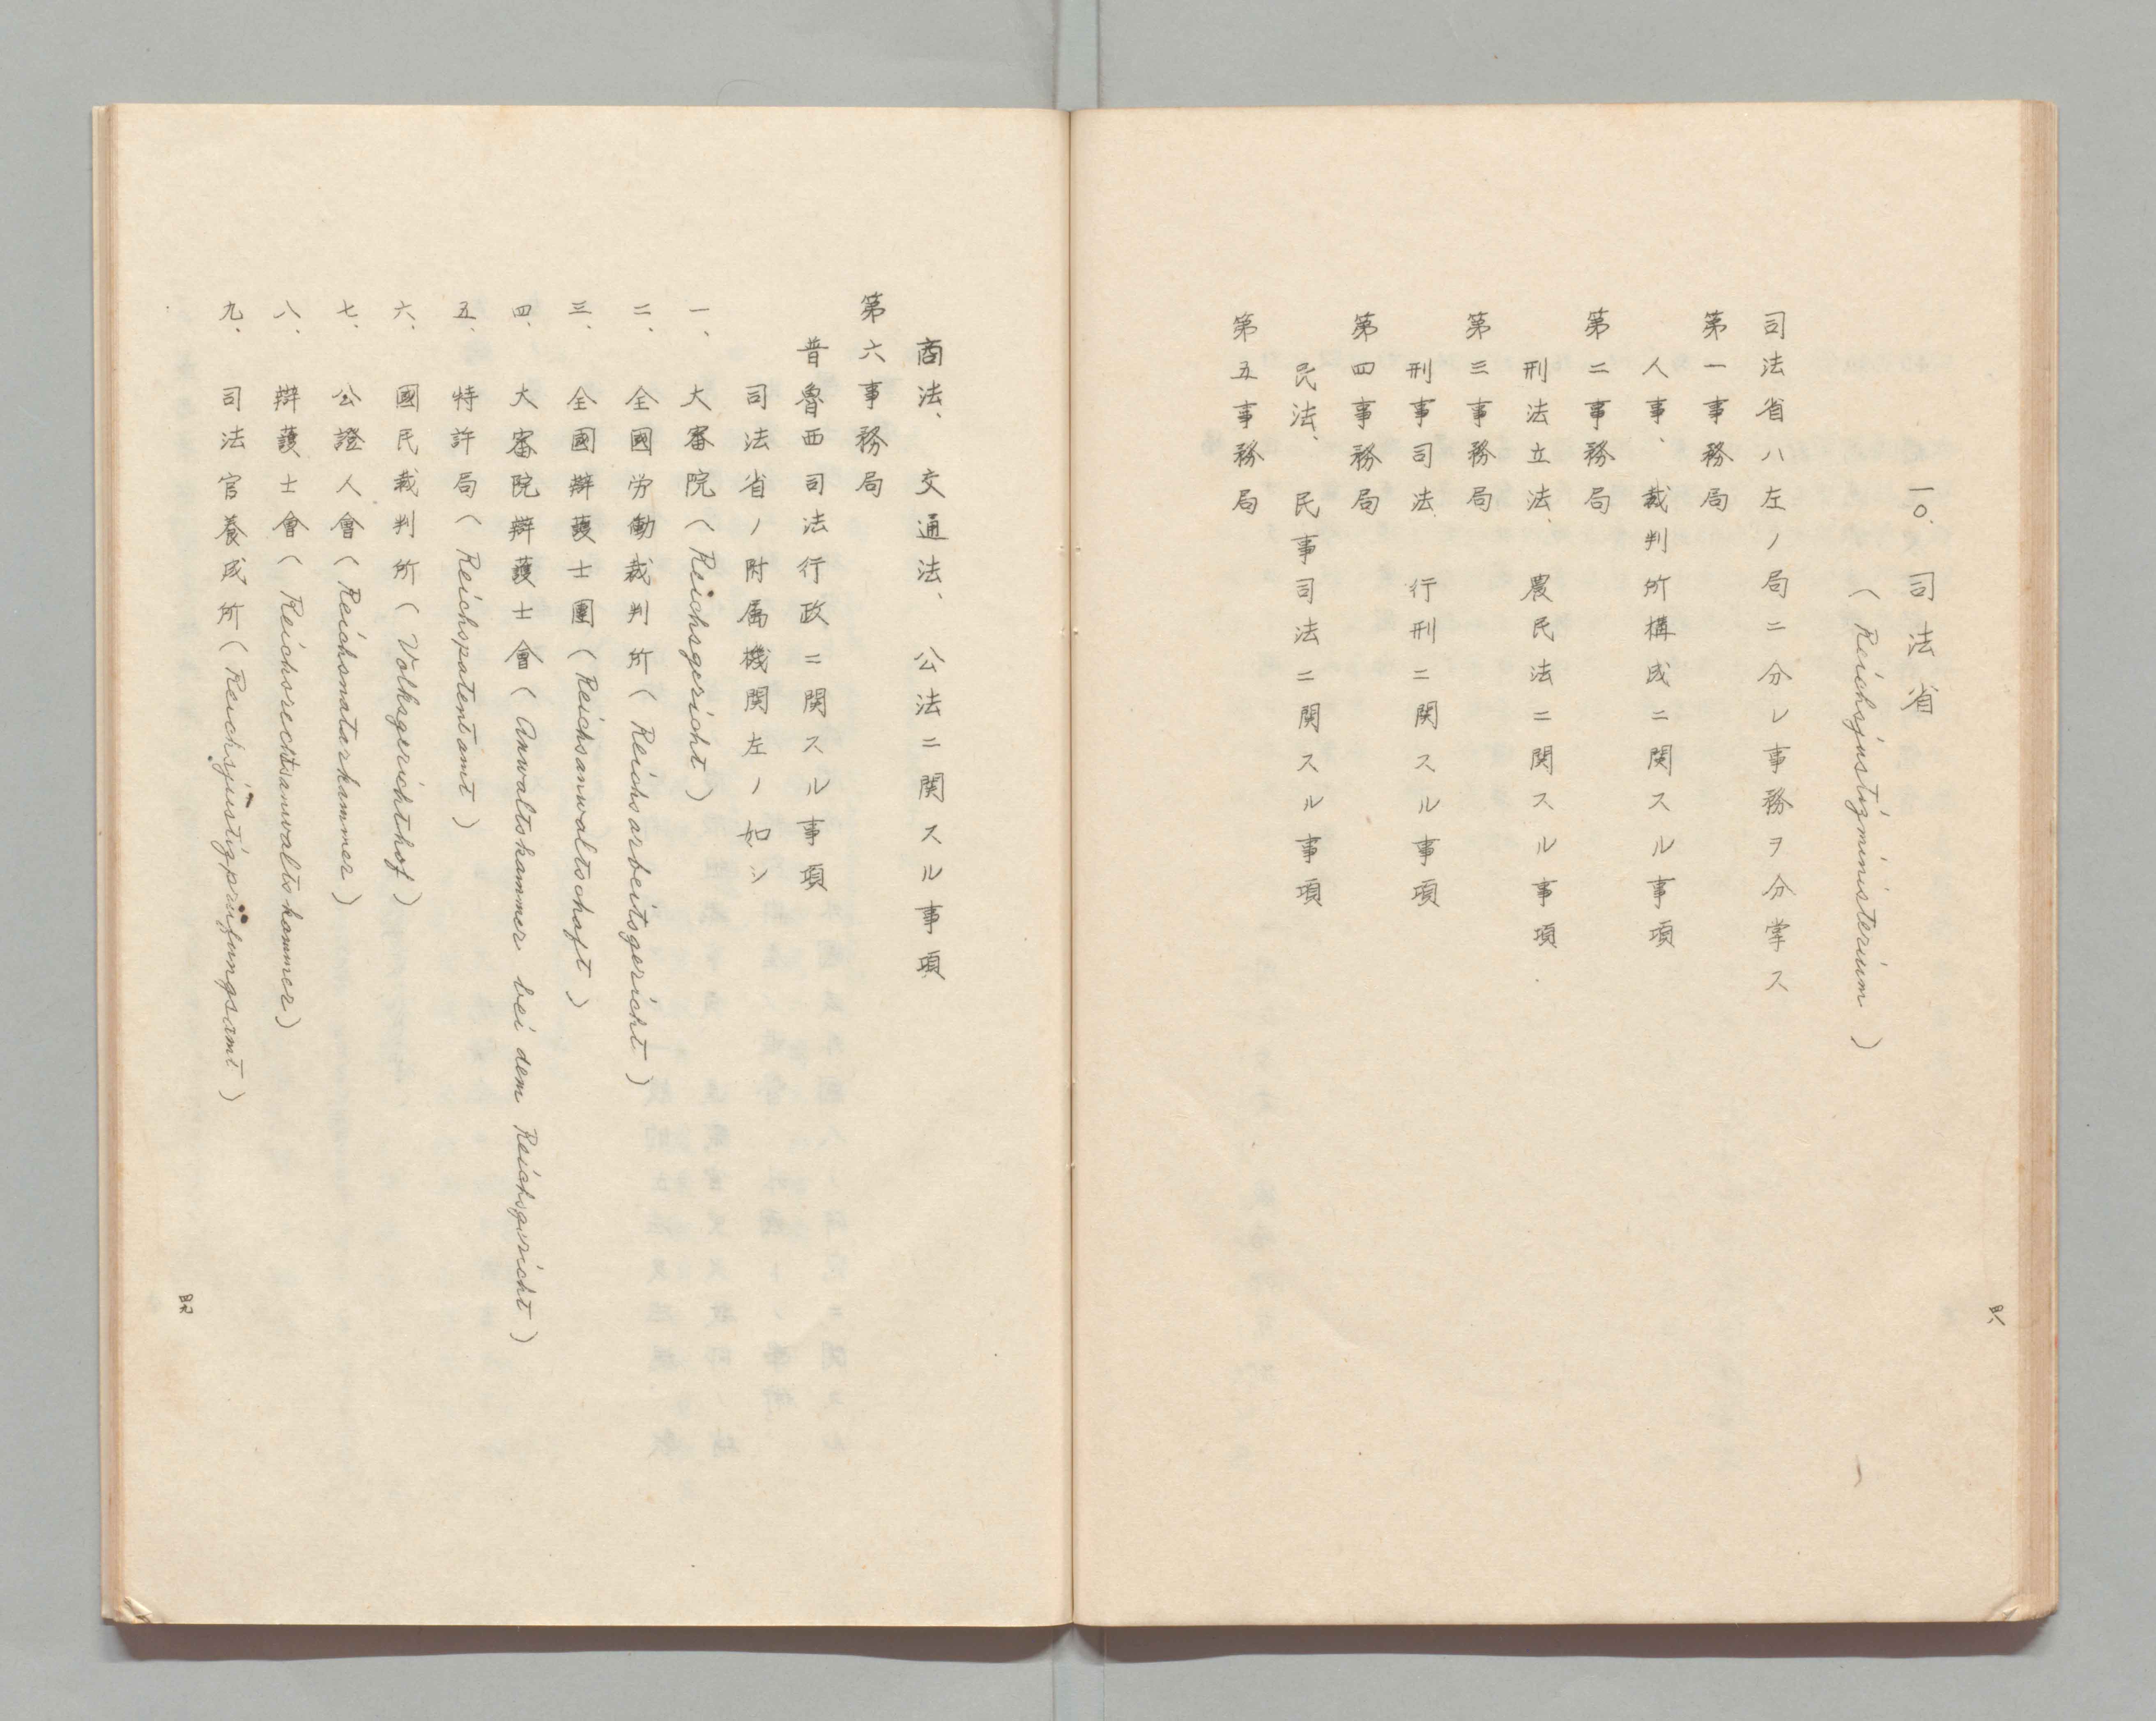 一〇、司法省
(Reichsjustizministerium)
司法省ハ左ノ局ニ分レ事務ヲ分掌ス
第一事務局
人事、裁判所構成ニ関スル事項
第二事務局
刑法立法、農民法ニ関スル事項
第三事務局
刑事司法、行刑ニ関スル事項
第四事務局
民法、民事司法ニ関スル事項
第五事務局
四八
商法、交通法、公法ニ関スル事項
第六事務局
普魯西司法行政ニ関スル事項
司法省ノ附属機関左ノ如シ
一、大審院(Reichsgericht)
二、全國労働裁判所(Reichsarbeitsgericht)
三、全國辯護士團(Reichsanwaltschaft)
四、大審院辯護士會(Anwaltskammer bei dem Reichsgericht)
五、特許局(Reichspatentamt)
六、國民裁判所(Volksgerichthof)
七、公證人會(Reichsnotarkammer)
八、辯護士會(Reichsrechtsanwaltskammer)
九、司法官養成所(Reichsjustizprüfungsamt)
四九